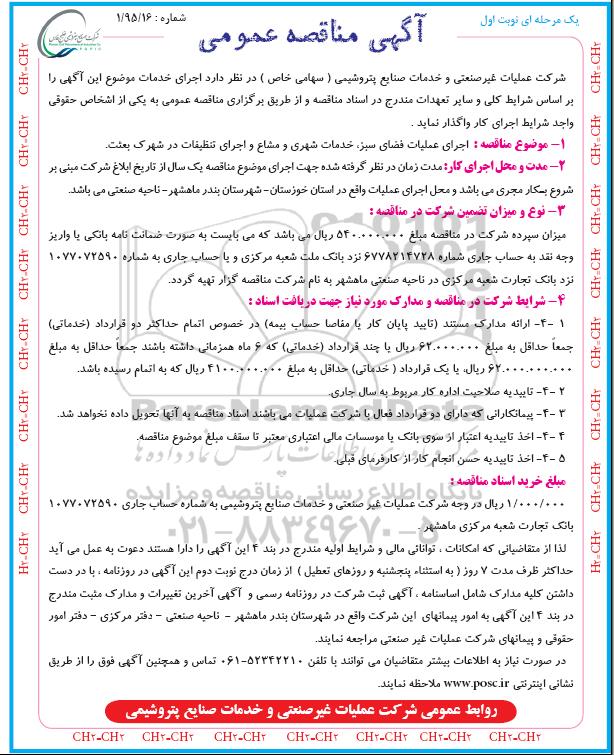 یک مرحله ای نوبت اول
آگهی مناقصه عمومی
شماره : ۱/۹۵/۱۶
شرکت عملیات غیرصنعتی و خدمات صنایع پتروشیمی ( سهامی خاص ) در نظر دارد اجرای خدمات موضوع این آگهی را
بر اساس شرایط کلی و سایر تعهدات مندرج در اسناد مناقصه و از طریق برگزاری مناقصه عمومی به یکی از اشخاص حقوقی
واجد شرایط اجرای کار واگذار نماید .
۱- موضوع مناقصه : اجرای عملیات فضای سبز، خدمات شهری و مشاع و اجرای تنظیفات در شهرک بعثت.
۲- مدت و محل اجرای کار: مدت زمان در نظر گرفته شده جهت اجرای موضوع مناقصه یک سال از تاریخ ابلاغ شرکت مبنی بر
شروع بکار مجری می باشد و محل اجرای عملیات واقع در استان خوزستان-شهرستان بندر ماهشهر-ناحیه صنعتی می باشد.
۳- نوع و میزان تضمین شرکت در مناقصه :
میزان سپرده شرکت در مناقصه مبلغ ۵۴۰.۰۰۰.۰۰۰ ریال می باشد که می بایست به صورت ضمانت نامه بانکی یا واریز
وجه نقد به حساب جاری شماره ۶۷۷۸۲۱۴۷۲۸ نزد بانک ملت شعبه مرکزی و یا حساب جاری به شماره ۱۰۷۷۰۷۲۵۹۰
نزد بانک تجارت شعبه مرکزی در ناحیه صنعتی ماهشهر به نام شرکت مناقصه گزار تهیه گردد.
۴- شرایط شرکت در مناقصه و مدارک مورد نیاز جهت دریافت اسناد :
۱ -۴- ارائه مدارک مستند (تایید پایان کار یا مفاصا حساب بیمه) در خصوص اتمام حداکثر دو قرارداد (خدماتی)
جمعاً حداقل به مبلغ ۶۲.۰۰۰.۰۰۰ ریال یا چند قرارداد (خدماتی) که ۶ ماه همزمانی داشته باشند جمعاً حداقل به مبلغ
۶۲.۰۰۰.۰۰۰.۰۰۰ ریال، یا یک قرارداد ( خدماتی) حداقل به مبلغ ۴۱۰۰.۰۰۰.۰۰۰ ریال که به اتمام رسیده باشد.
۲ -۴- تاییدیه صلاحیت اداره کار مربوط به سال جاری.
۳ -۴- پیمانکارانی که دارای دو قرارداد فعال با شرکت عملیات می باشند اسناد مناقصه به آنها تحویل داده نخواهد شد.
۴ -۴- اخذ تاییدیه اعتبار از سوی بانک یا موسسات مالی اعتباری معتبر تا سقف مبلغ موضوع مناقصه.
۵ -۴- اخذ تاییدیه حسن انجام کار از کارفرمای قبلی.
مبلغ خرید اسناد مناقصه :
۱/۰۰۰/۰۰۰ ریال در وجه شرکت عملیات غیر صنعتی و خدمات صنایع پتروشیمی به شماره حساب جاری ۱۰۷۷۰۷۲۵۹۰
بانک تجارت شعبه مرکزی ماهشهر .
لذا از متقاضیانی که امکانات ، توانائی مالی و شرایط اولیه مندرج در بند ۴ این آگهی را دارا هستند دعوت به عمل می آید
حداکثر ظرف مدت ۷ روز ( به استثناء پنجشنبه و روزهای تعطیل ) از زمان درج نوبت دوم این آگهی در روزنامه ، با در دست
داشتن کلیه مدارک شامل اساسنامه ، آگهی ثبت شرکت در روزنامه رسمی و آگهی آخرین تغییرات و مدارک مثبت مندرج
در بند ۴ این آگهی به امور پیمانهای این شرکت واقع در شهرستان بندر ماهشهر - ناحیه صنعتی - دفتر مرکزی - دفتر امور
حقوقی و پیمانهای شرکت عملیات غیر صنعتی مراجعه نمایند.
در صورت نیاز به اطلاعات بیشتر متقاضیان می توانند با تلفن ۵۲۳۴۲۲۱۰-۰۶۱ تماس و همچنین آگهی فوق را از طریق
نشانی اینترنتی www.posc.ir ملاحظه نمایند.
روابط عمومی شرکت عملیات غیرصنعتی و خدمات صنایع پتروشیمی
CH۲-CH۲ CH۲-CH۲ CH۲-CH۲ CH۲-CH۲ CH۲-CH۲ CH۲-CH۲ CH۲-CH۲
ParsNamadData
پایگاه اطلاع رسانی مناقصه و مزایده
۰۲۱-۸۸۳۴۹۶۷۰-۵